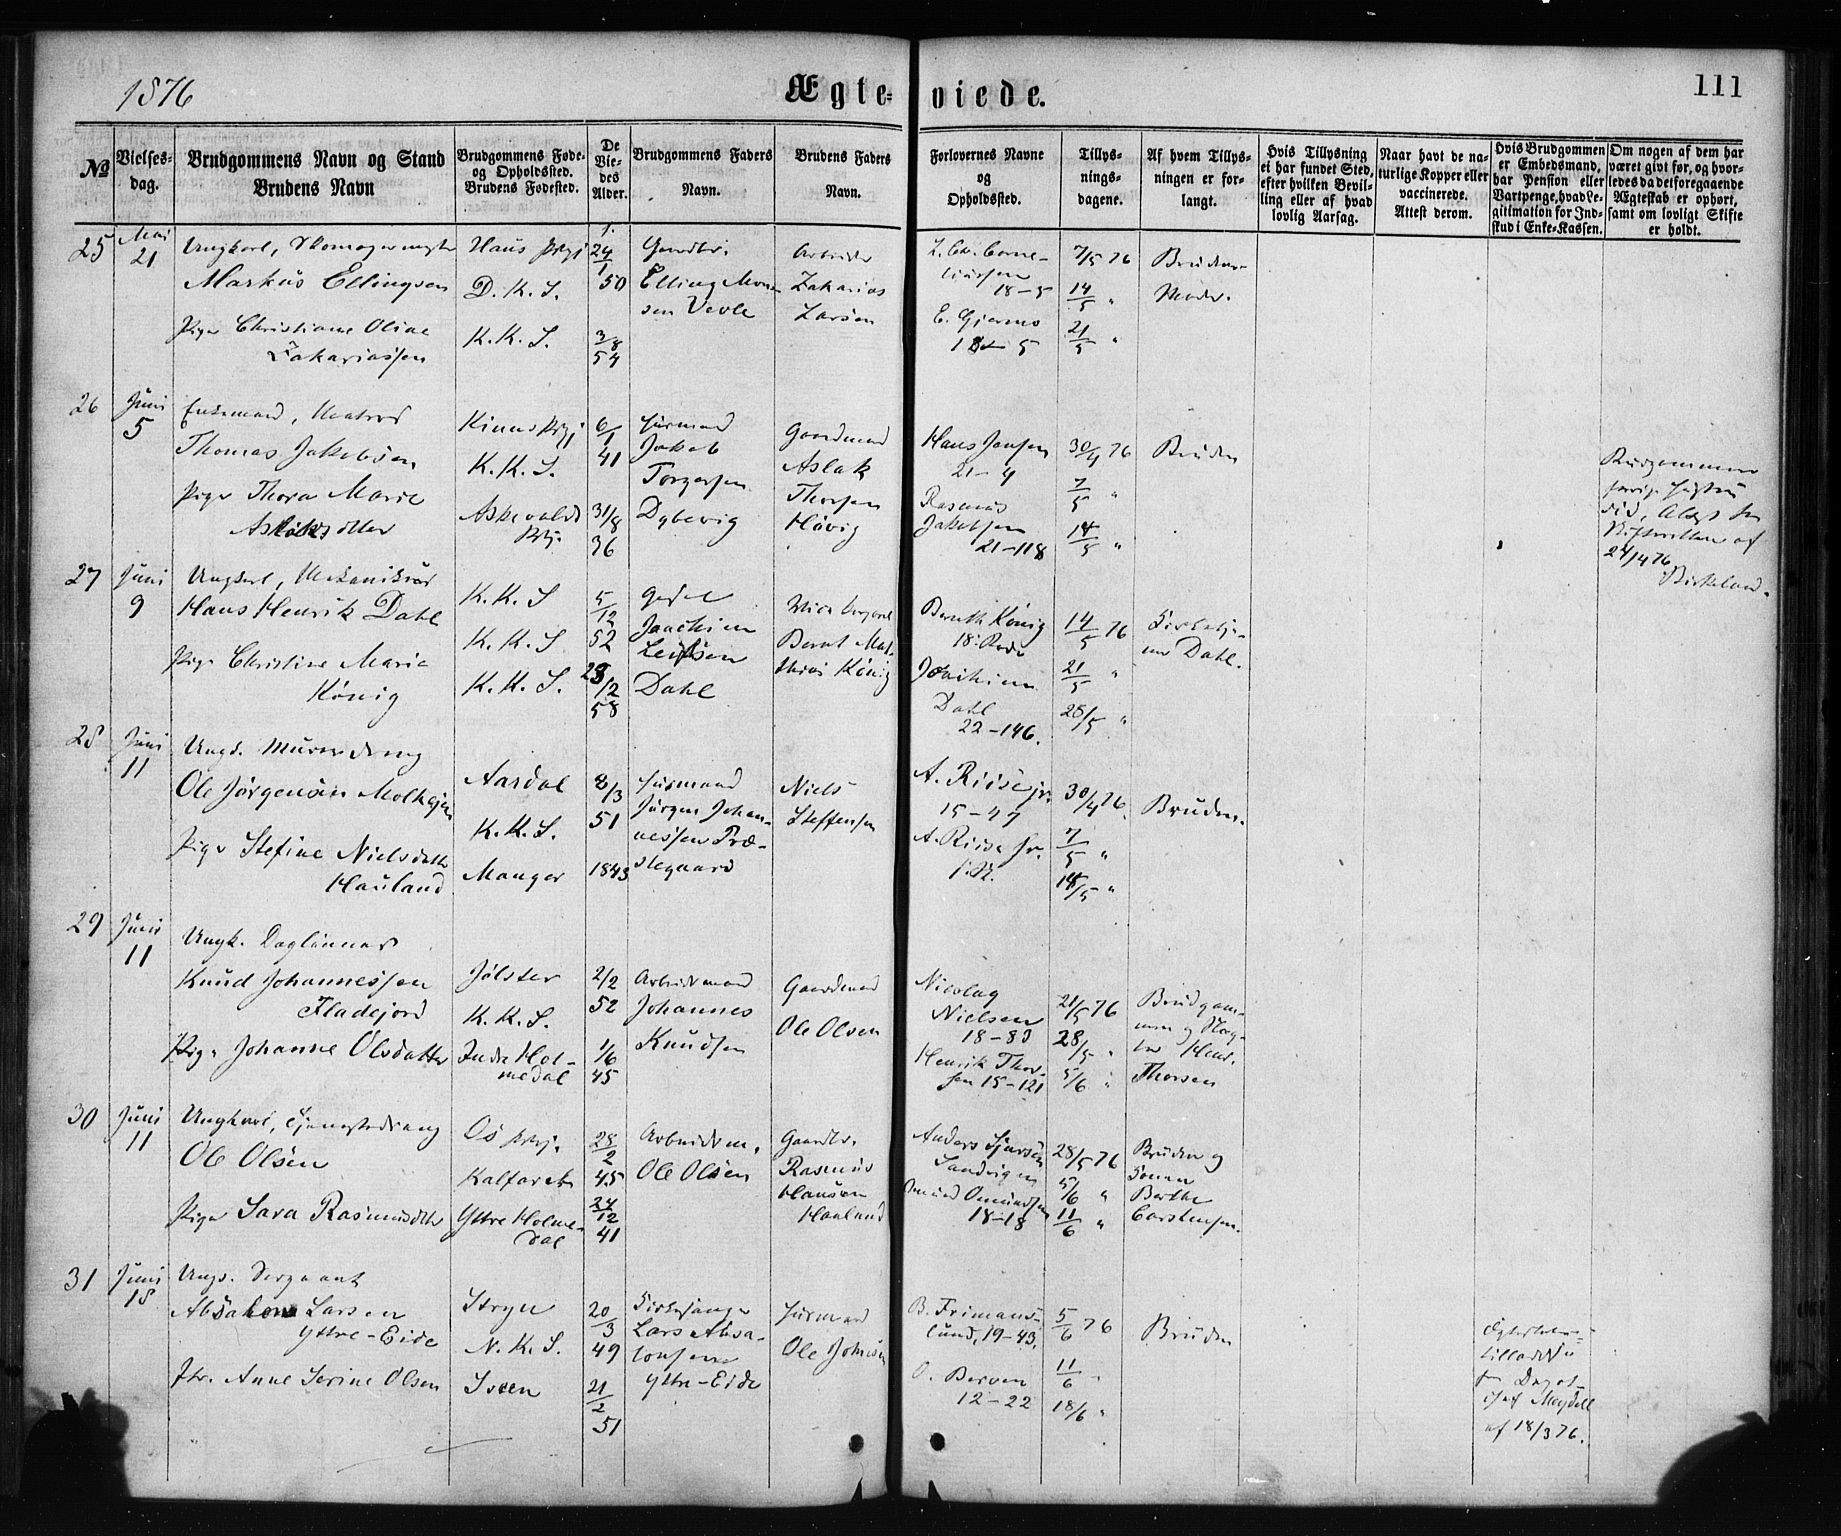 1876
Ægte-
viede.
111
No
Vielses-
dag.
Brudgommens Navn og Stand
Brudens Navn
Brudgommens Føde-
og Opholdssted.
Brudens Fødested.
De
Vie-
des
Alder.
Brudgommens Faders
Navn.
Brudens Faders
Navn.
Forlovernes Navne
og
Opholdssted.
Tillys-
nings-
dagene.
Af hvem Tillys-
ningen er for-
langt.
Hvis Tillysning
ei har fundet Sted,
efter hvilken Bevil-
ling eller af hvad
lovlig Aarsag.
Naar havt de na-
turlige Kopper eller
vaccinerede.
Attest derom.
Hvis Brudgommen
er Embedsmand,
har Pension eller
Vartpenge, hvad Le-
gitimation for Ind-
skud i Enke-Kassen.
Om nogen af dem har
været gift før, og hvor-
ledes da det foregaaende
Ægteskab er ophørt,
samt om lovligt Skifte
er holdt.
25
Mai
21
Ungkarl, Skomagermester
Markus Ellingsen
Pige Christiane Oline
Zakariassen
Haus Prgj
D. K. S.
K. K. S.
24/1
50
3/8
54
Gaardbr.
Elling Mon-
sen Vevle
Arbeider
Zakarias
Larsen
L. Chr. Corne-
liussen
18-5
E. Gjermo
7/5 76
14/5 "
21/5 "
Brudens
Moder.
26
Juni
5
Enkemand, Matros
Thomas Jakobsen
Pige Thora Marie
Aslaksdtter
Kinns Prgj
K. K. S.
Askevolds
Prgj.
6/1
41
31/8
36
Huusmand
Jakob
Torgersen
Dybevig
Gaardmand
Aslak
Thorsen
Høvig
Hans Jansen
21-4
Rasmus
Jakobsen
21-118
30/4 76
7/5 "
14/5 "
Bruden
Brudgommens
24/4 76
Birkeland.
27
Juni
9
Ungkarl, Mekanikus
Hans Henrik Dahl
Pige Christine Marie
König
K. K. S
K. K. S
K. K. S.
5/12
52
23/2
58
Joachim
Dahl
Bernt Mat-
thias König
Bernth König
18. Rode
Joachim
Dahl
22-146.
14/5 76
21/5 "
28/5 "
Dahl.
28
Juni
11
Ungk. Murerdreng
Ole Jørgensen
Pige Stefine Nielsdatter
Hauland
Aardal
K. K. S.
Manger
8/3
51
1843
Huusmand
Jørgen Johan-
nessen Præ-
stegaard
Niels
Steffensen
A. Riise jr.
15-47
A. Riise sr.
30/4 76.
7/5 "
14/5 "
Bruden.
29
Juni
11
Ungk. Daglønner
Knud Johannessen
Fladejord
Pige Johanne Olsdatter
Jølster
K. K. S.
Indre Hol-
medal
2/2
52
1/6
45
Arbeidsmand
Johannes
Knudsen
Gaardmand
Ole Olsen
Nicolay
Nielsen
18-83
Henrik Thor-
sen 15-121
21/5 76
28/5 "
5/6 "
Brudgom-
men og
Henr.
Thorsen
30
Juni
11
Ungkarl, Tjenestedreng
Ole Olsen
Pige Sara Rasmusdtter
Os Prgj.
Kalfaret
Yttre Holme-
dal
28/2
45
24/12
41
Arbeidsm.
Ole Olsen
Gaardbr.
Rasmus
Hansen
Haaland
Anders Sjursen
Sandvigen
Omund Omundsen
18-18
28/5 76
5/6 "
11/6 "
Bruden og
Berthe
Carstensen.
31
Juni
18
Ungk. Sergeant
Absalon Larsen
Yttre-Eide
Jfr. Anne Serine Olsen
Stryn
N. K. S.
Sveen
20/3
49
21/2
51
Kirkesanger
Lars Absa-
lonsen
Yttre-Eide
Huusmand
Ole Johnsen
B. Frimans-
lund, 19-43.
O. Berven
12-22
5/6 76
11/6 "
18/6 "
Bruden
af 18/3 76.